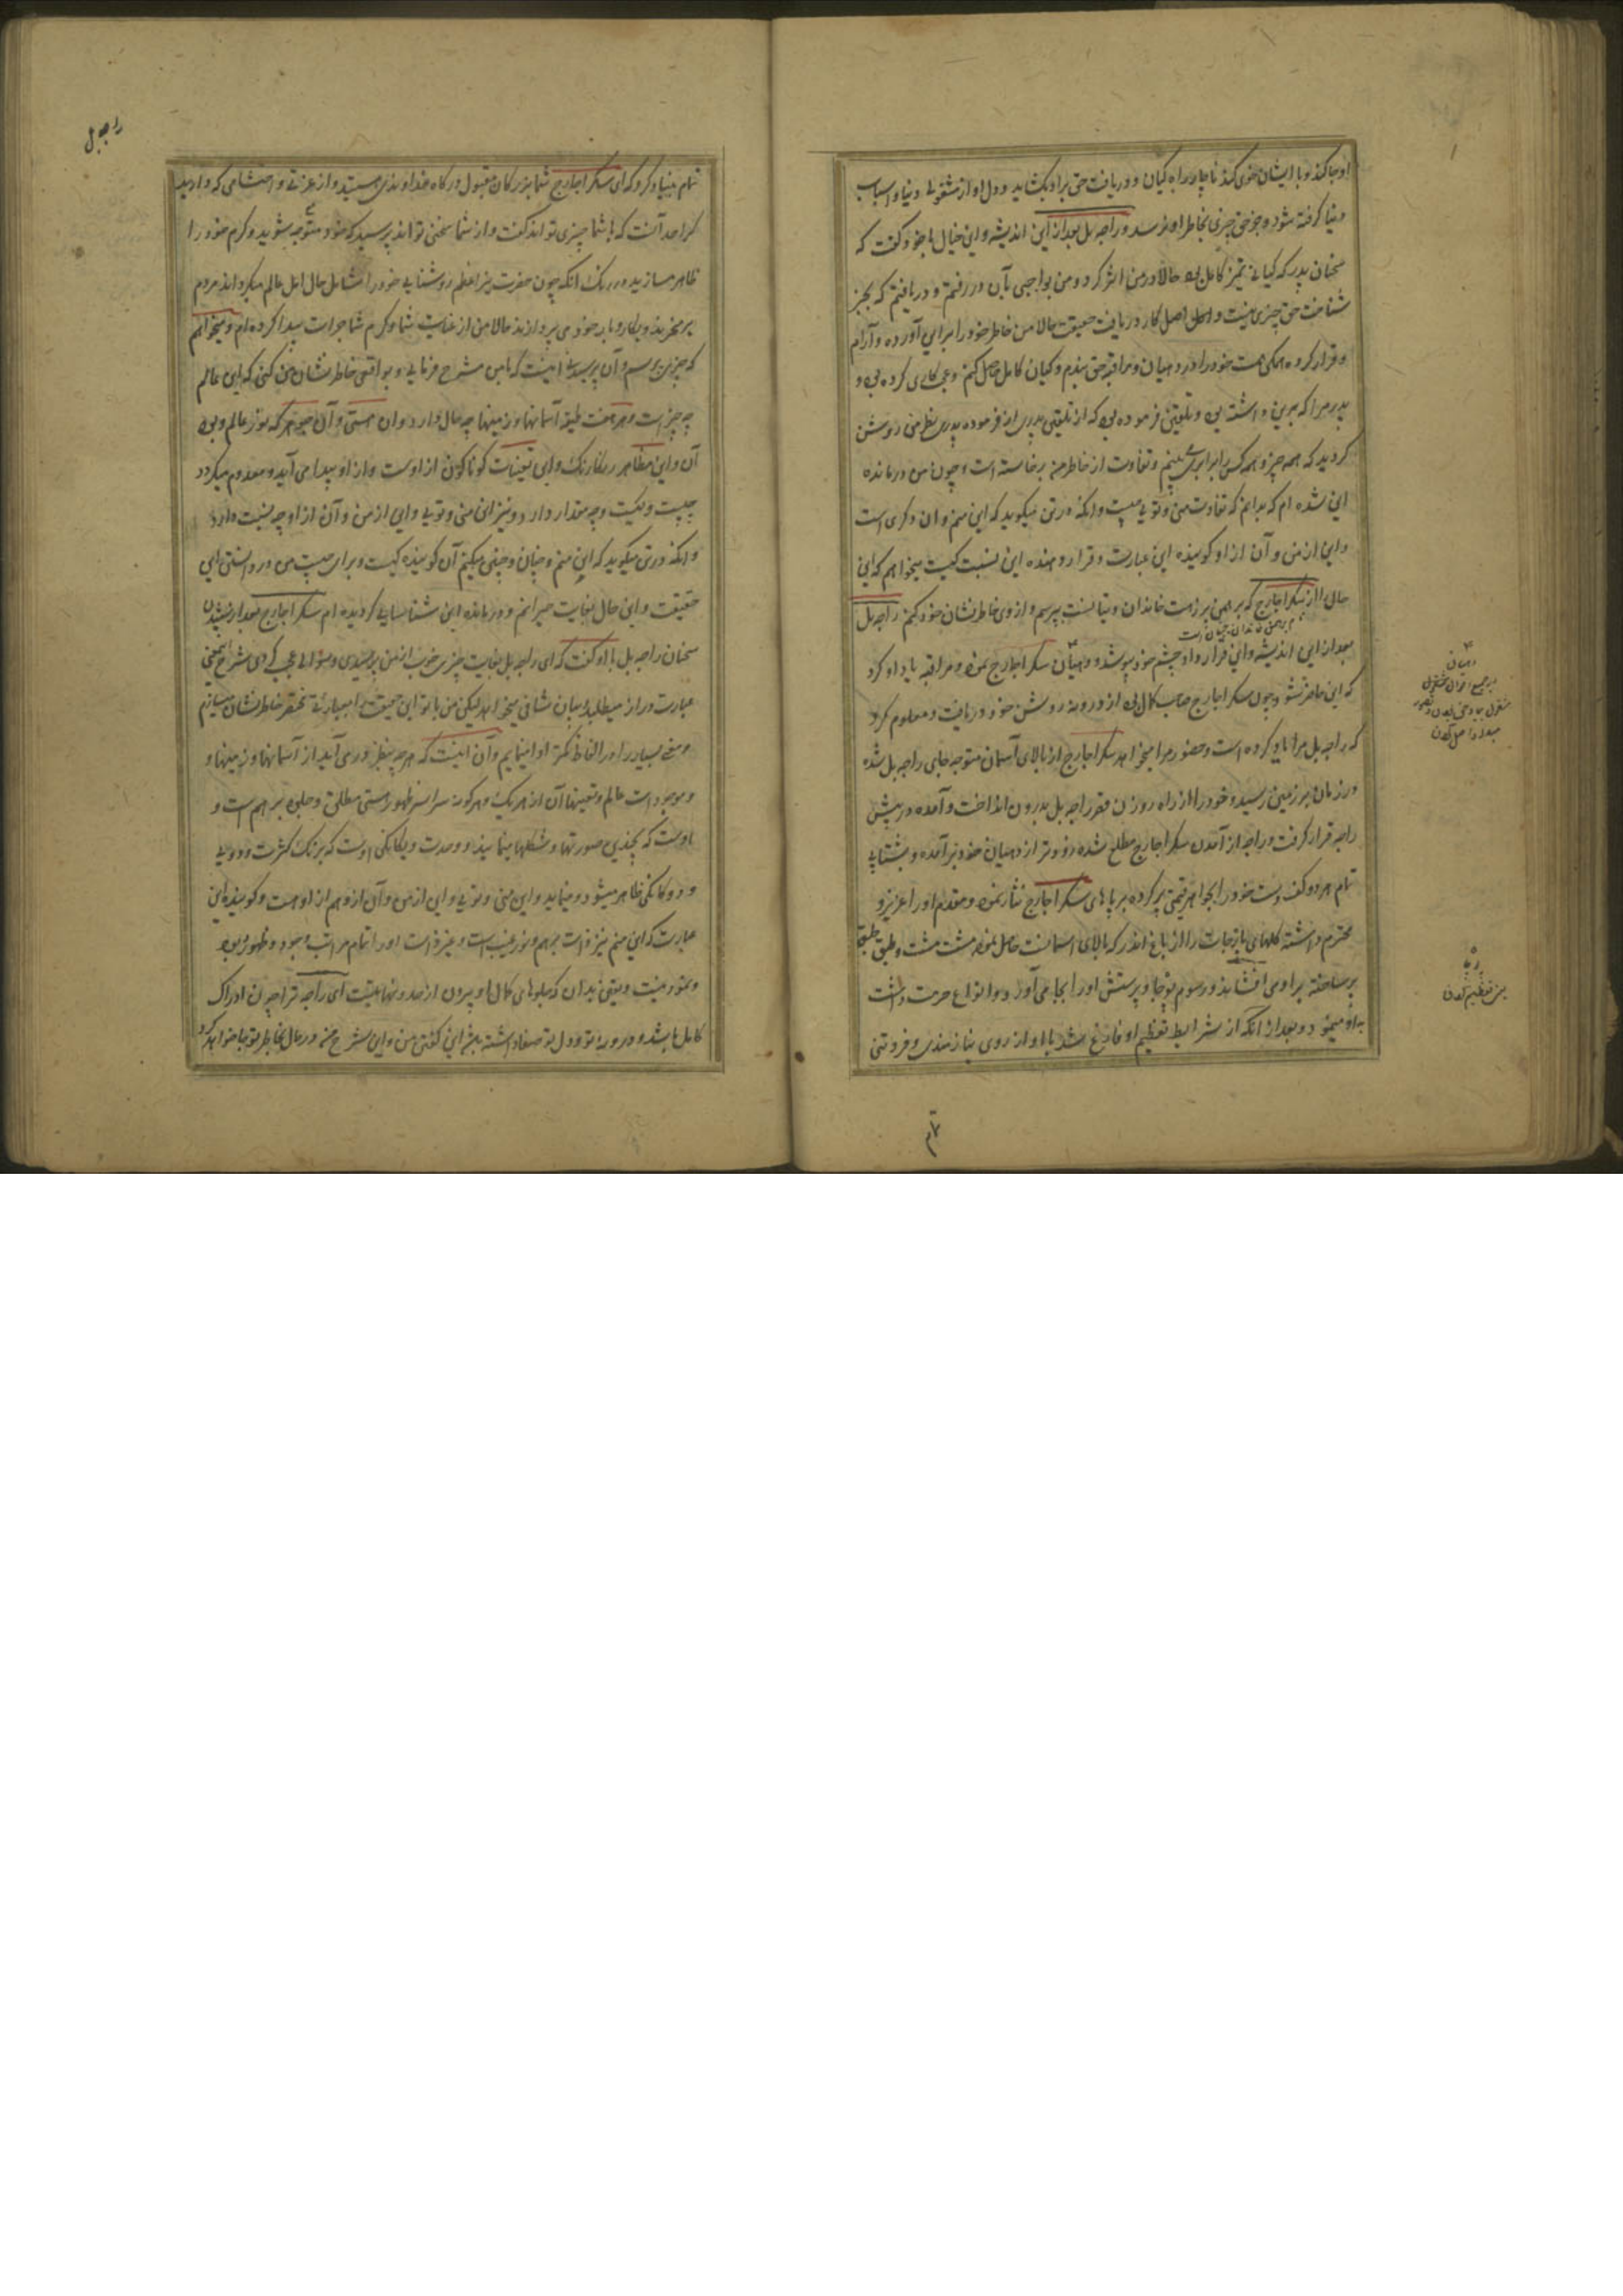 او جا کند و با ایشان خوی کند ناچار راه کیان و دریافت حق برا و بکشاید و دل او از مشغولی دنیا و اسباب
دنیا گرفته شود و جز حق چیزی بخاطر او نرسد و راجه بل بعد از این اندیشه و این خیال با خود گفت که
سخنان پدر که گیانی تمیز کامل بود حالا در من اثر کرد و من بواجبی بآن در رفتم و دریافتم که بجز
شناخت حق چیزی نیست و اصل کار دریافت حقیقت حالا من خاطر خود را برای آورده و آرام
و قرار کرده همگی همت خود را در دهیان و مراقبه حق بندم و کیان کامل حاصل کنم و عجب کاری کرده بود
پدر مرا که برین داشته بود و تلقین فرموده بود که از تلقین پدری از فرموده پدری نظر من روشن
گردید که همه چیز و همه کس را برابر می بینم و تفاوت از خاطر من برخاسته است و چون من درمانده
این شده ام که بدانم که تفاوت منی و تویی چیست و انکه در تن میگوید که این منم و ان دگری است
و این از من و آن از او گوینده این عبارت و قرار دهنده این نسبت کیست میخواهم که این
حال را از سکراجارج که برهمن بزرگ خاندان دیتا است بپرسم و از وی خاطر نشان خود کنم راجه بل
بعد از این اندیشه و این قرار داد چشم خود پوشید و دهیان سکراجارج نموده مراقبه یاد او کرد
که این حاضر شود چون سکراجارج صاحب کمال بود از درونه روشن خود دریافت و معلوم کرد
که راجه بل مرا یاد کرده است و حضور مرا میخواهد سکراجارج از بالای آسمان متوجه جای راجه بل شده
در زمان بر زمین رسید و خود را از راه روزن قصر راجه بل بدرون انداخت و آمده در پیش
راجه قرار گرفت و راجه از آمدن سکراجارج مطلع شده زودتر از دهیان خود برآمده و بشتابی
تمام هر دو کف دست خود را بجواهر قیمتی پر کرده بر پاهای سکراجارج نثار نموده و مقدم او را عزیز و
محترم داشته گلهای پارجات را از باغ اندر که بالای اسمانست حاصل نموده مشت مشت و طبق طبق
بر ساخته بر او می افشاند و رسوم پوجا و پرستش او را بجا می آورد و انواع حرمت داشت
باو مینمود و بعد از انکه از شرایط تعظیم او فارغ شد با او از روی نیازمندی و فروتنی
تمام بنیاد کرد که ای سکراجارج شما بزرگان مقبول درگاه خداوندی هستید و از عزتی و احتشامی که دارید
کرا حد آنست که با شما چیزی تواند گفت و از شما سخنی تواند پرسید که خود متوجه شوید و کرم خود را
ظاهر سازید در رنگ انکه چون حضرت نیر اعظم روشنایی خود را شامل حال اهل عالم میگرداند مردم
برمیخیزند و بکار و بار خود می پردازند حالا من از عنایت شما و کرم شما جرات پیدا کرده ام و میخواهم
که چیزی پرسم و آن پرسیدنی اینست که بامن مشرح فرمایی و بواقعی خاطر نشان من کنی که این عالم
چه چیز است و هر هفت طبقه آسمانها و زمینها چه حال دارد و ان هستی و آن جوهر که نور عالم و بود
آن و این مظاهر رنگارنگ و این تعینات گوناگون از اوست و از او پیدا می آید و معدوم میگردد
چیست و کیست و چه مقدار دارد و نیز ان منی و تویی و این از من و آن از او چه نسبت دارد
و انکه در من میگوید که این منم و چنان و چنین میکنم آن گوینده کیست و برای چیست من در دانستن این
حقیقت و این حال بغایت حیرانم و درمانده این شناسایی گردیده ام سکراجارج بعد از شنیدن
سخنان راجه بل با او گفت که ای راجه بل بغایت چیزی خوب از من پرسیدی و سؤالی عجب کردی شرح این معنی
عبارت دراز میطلبد و بیان شافی میخواهد لیکن من با تو این حقیقت را بعبارتی مختصر خاطر نشان میسازم
و معنی بسیار را در الفاظ کمتر ادا مینمایم و آن اینست که هر چه بنظر در می آید از آسمانها و زمینها و
و موجود است عالم و تعینها آن از هر یک و هر گونه سراسر ظهور هستی مطلق و جلوه برهم است و
اوست که بچندین صورتها و شکلها مینماید و وحدت و یگانگی اوست که برنگ کثرت و دویی
و دوگانگی ظاهر میشود و مینماید و این منی و تویی و این از من و آن از و هم از اوست و گوینده این
عبارت که این منم نیز ذات برهم و نور غیب است و غیر ذات او را تمام مراتب وجود و ظهور بود
و نمود نیست و یقین بدان که جلوهای کمال او بیرون از حد و نهایتست ای راجه ترا چون ادراک
کامل باشد و درونه تو و دل تو صفا داشته باشد این گفتن من و این شرح من در حال بخاطر تو جا خواهد کرد
راجه بل